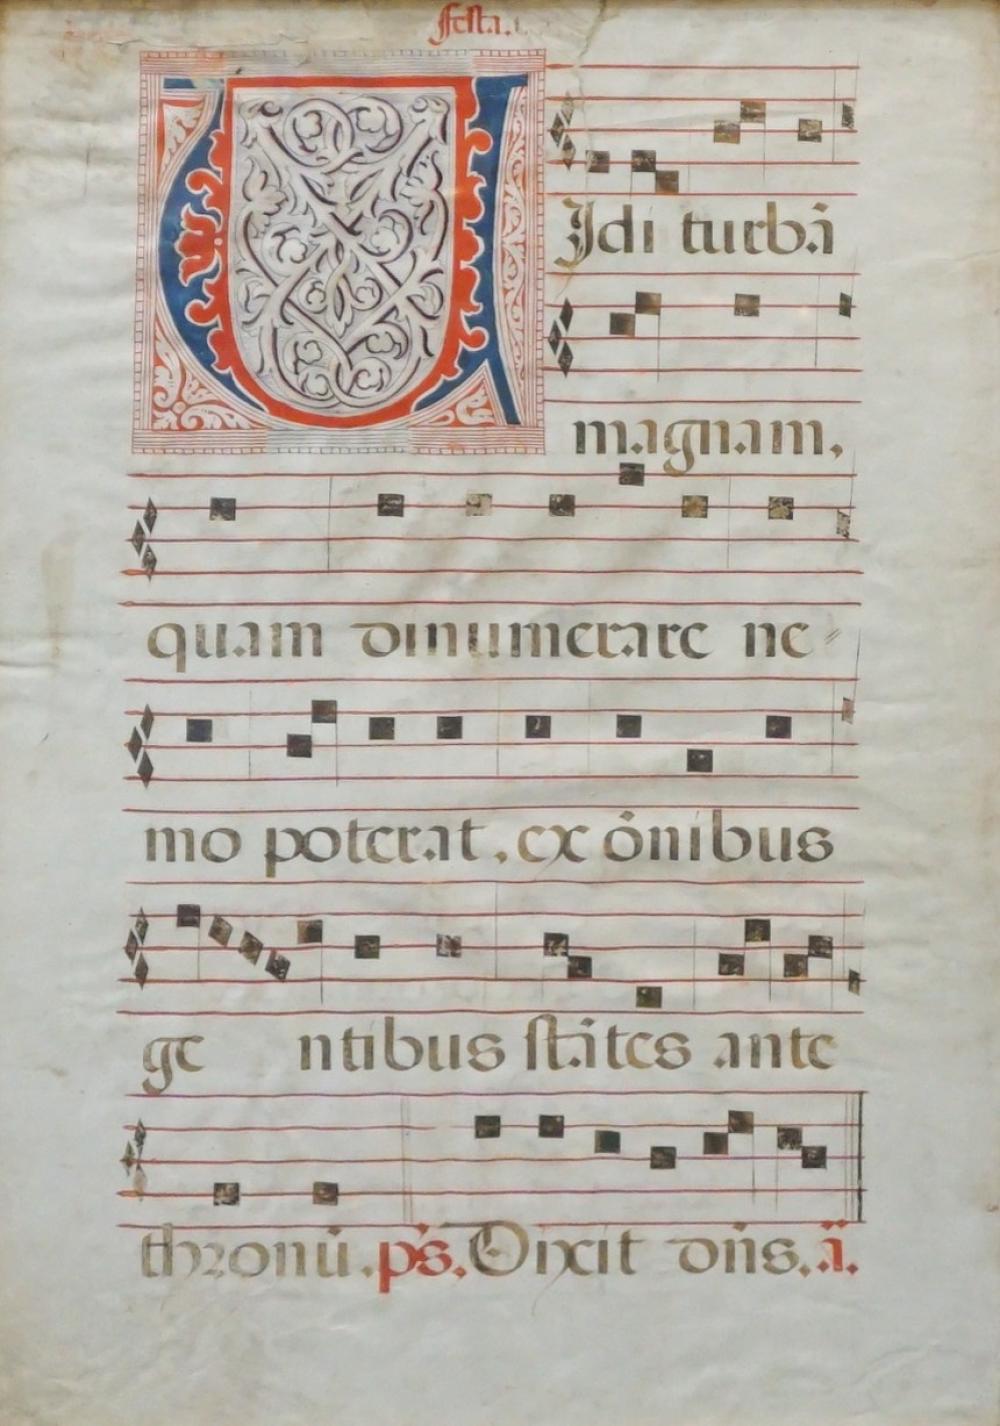 festa.
VIdi turbā
magnam,
quam dinumerare ne=
mo poterat, ex ōnibus
ge ntibus stātes ante
thronū. ps. Dixit dn̄s. ā.